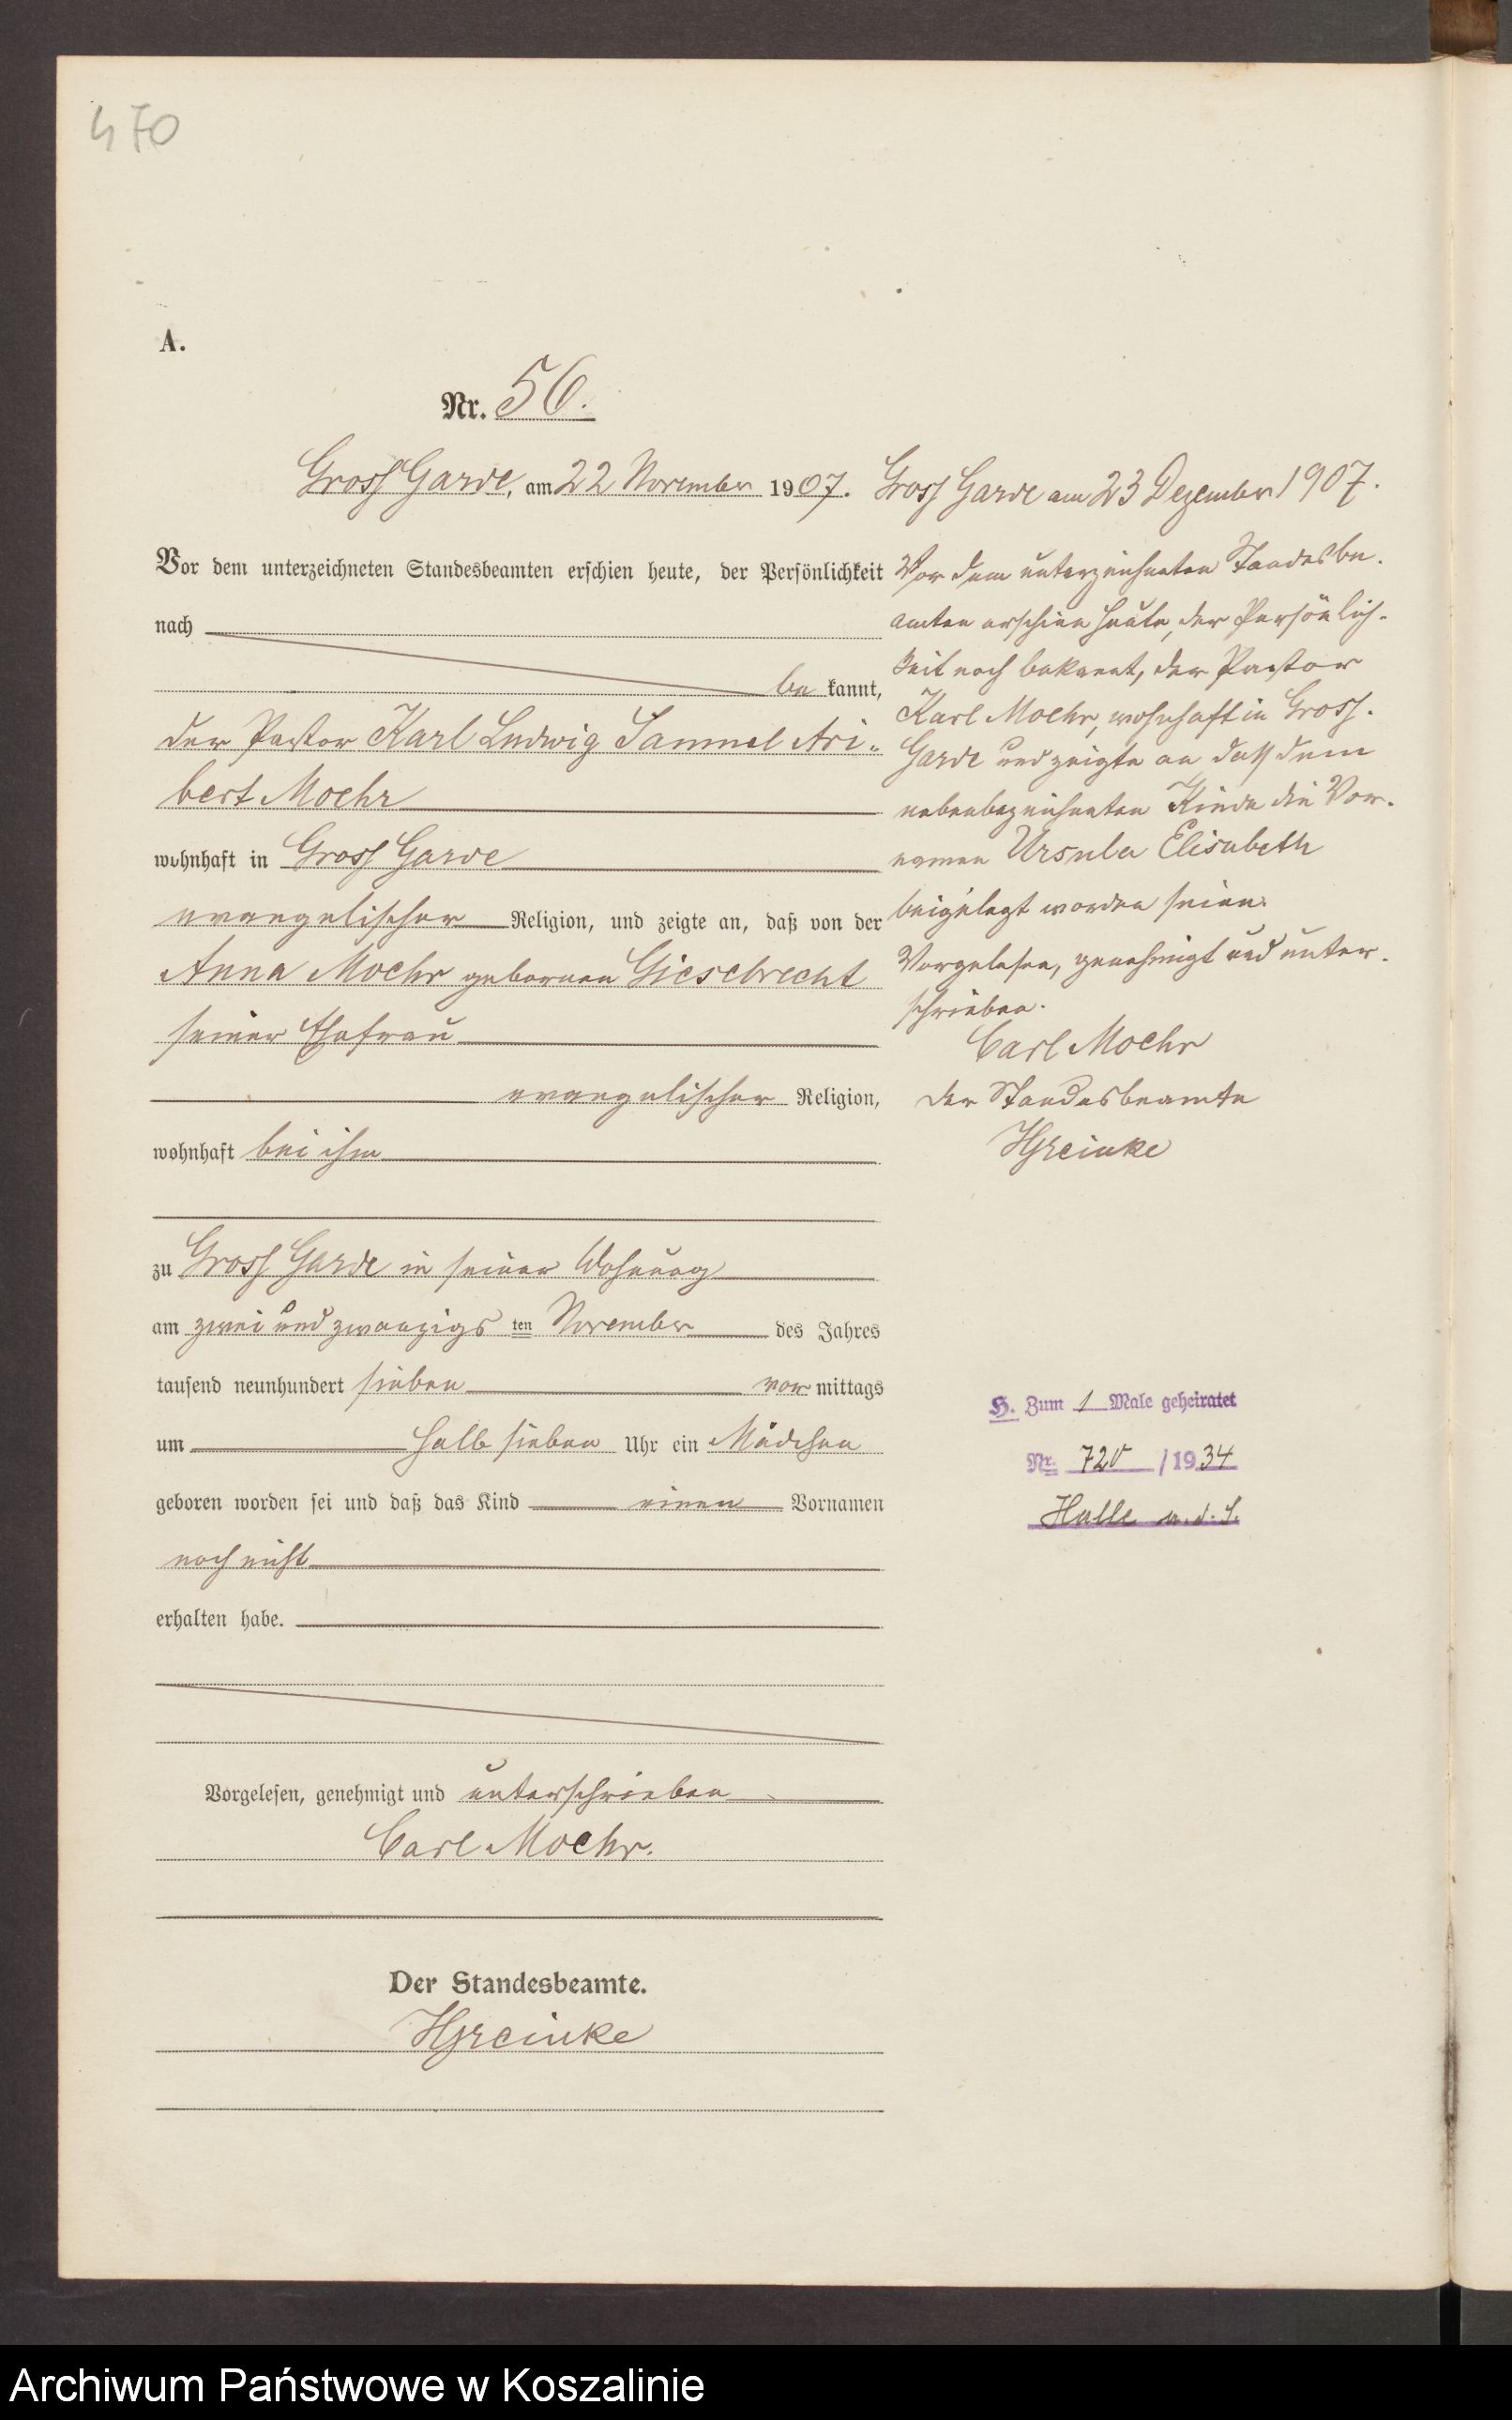 470
A.
Nr. 56.
Gross Garde, am 22 November 1907.
Vor dem unterzeichneten Standesbeamten erschien heute, der Persönlichkeit
nach
be kannt,
der Pastor Karl Ludwig Samuel Ari-
bert Moehr
wohnhaft in Gross Garde
evangelischer Religion, und zeigte an, daß von der
Anna Moehr geborenen Giesebrecht
seiner Ehefrau
evangelischer Religion,
wohnhaft bei ihm
zu Gross Garde in seiner Wohnung
am zwei und zwanzigs ten November des Jahres
tausend neunhundert sieben vor mittags
um halb sieben Uhr ein Mädchen
geboren worden sei und daß das Kind einen Vornamen
noch nicht
erhalten habe.
Vorgelesen, genehmigt und unterschrieben
Carl Moehr.
Der Standesbeamte.
Gross Garde am 23 Dezember 1907.
Vor dem unterzeichneten Standesbe-
amten erschien heute, der Persönlich-
keit nach bekannt, der Pastor
Karl Moehr, wohnhaft in Gross-
Garde und zeigte an daß dem
nebenbezeichneten Kinde die Vor-
namen Ursula Elisabeth
beigelegt worden seien.
Vorgelesen, genehmigt und unter-
schrieben.
Carl Moehr
Der Standesbeamte
H. Zum 1 Male geheiratet
Nr. 720 /1934
Halle a. d. S.
Archiwum Państwowe w Koszalinie